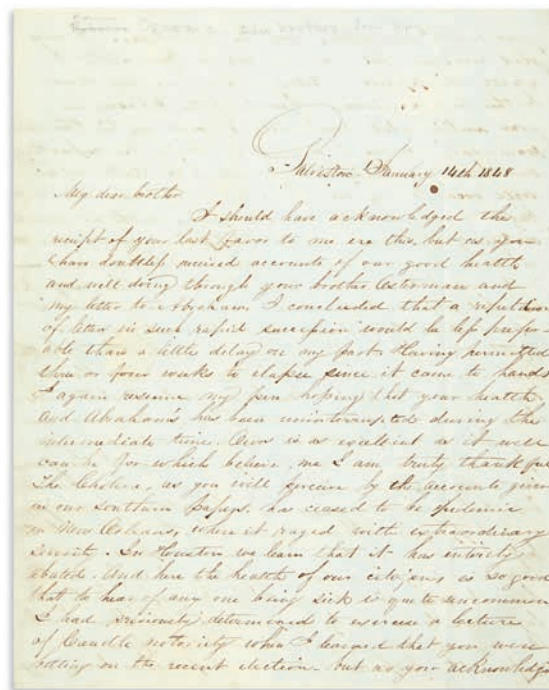 Galveston January 14th 1848
My dear brother
I should have acknowledged the
receipt of your last favor to me ere this, but as you
have doubtless received accounts of our good health
and well doing through your brother Osterman and
my letter to Abraham I concluded that a repetition
of letter in such rapid succession would be less prefer-
able than a little delay on my part. Having permitted
three or four weeks to elapse since it came to hand
I again resume my pen hoping that your health
and Abraham's has been uninterrupted during the
intermediate time. Ours is as excellent as it well
can be for which believe me I am truly thankful
The Cholera, as you will perceive by the accounts given
in our Southern papers, has ceased to be epidemic
in New Orleans, where it raged with extraordinary
. In Houston we learn that it has entirely
abated. And here the health of our citizens is so good
that to hear of any one being sick is quite uncommon
I had previously determined to exercise a lecture
of Caudle notoriety when I learned that you were
betting on the recent election. but as your acknowledge